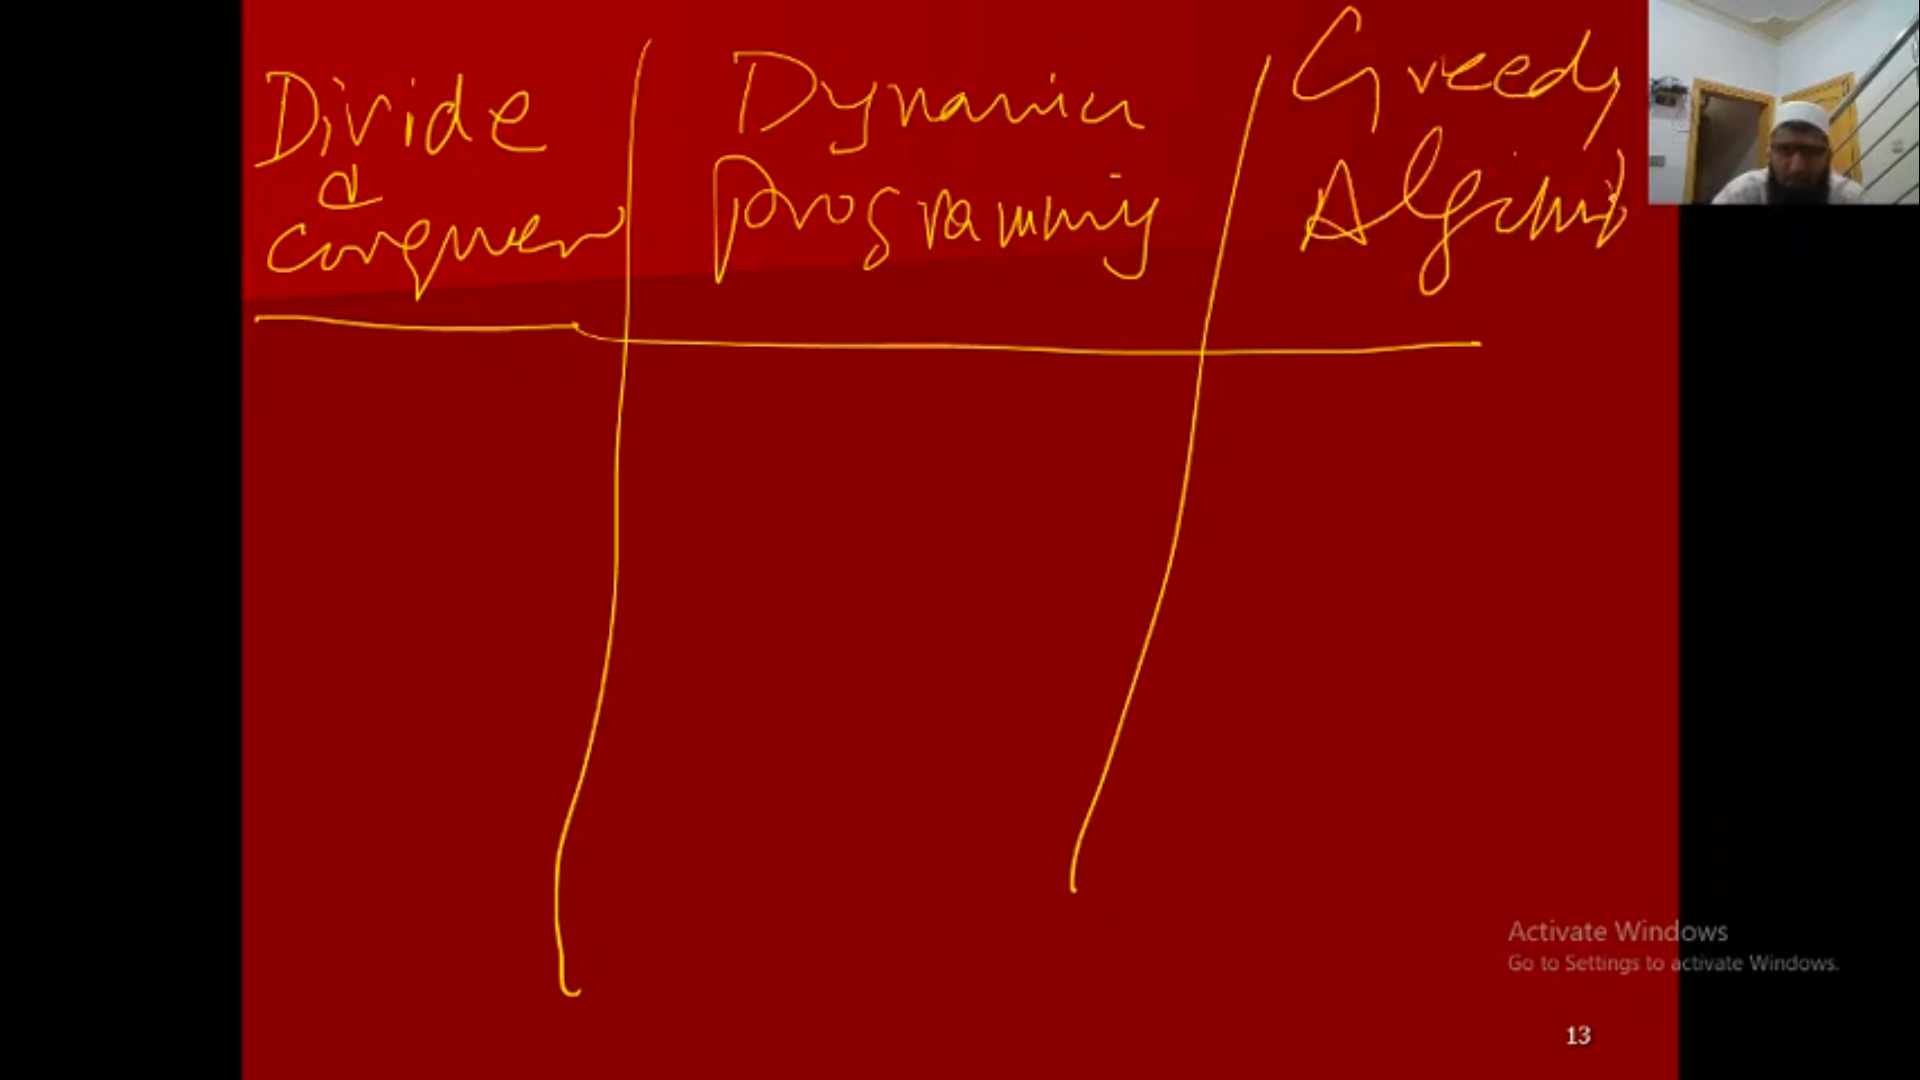 Divide
&
Conquer
Dynamic
Programming
Greedy
Algorithm
Activate Windows
Go to Settings to activate Windows.
13